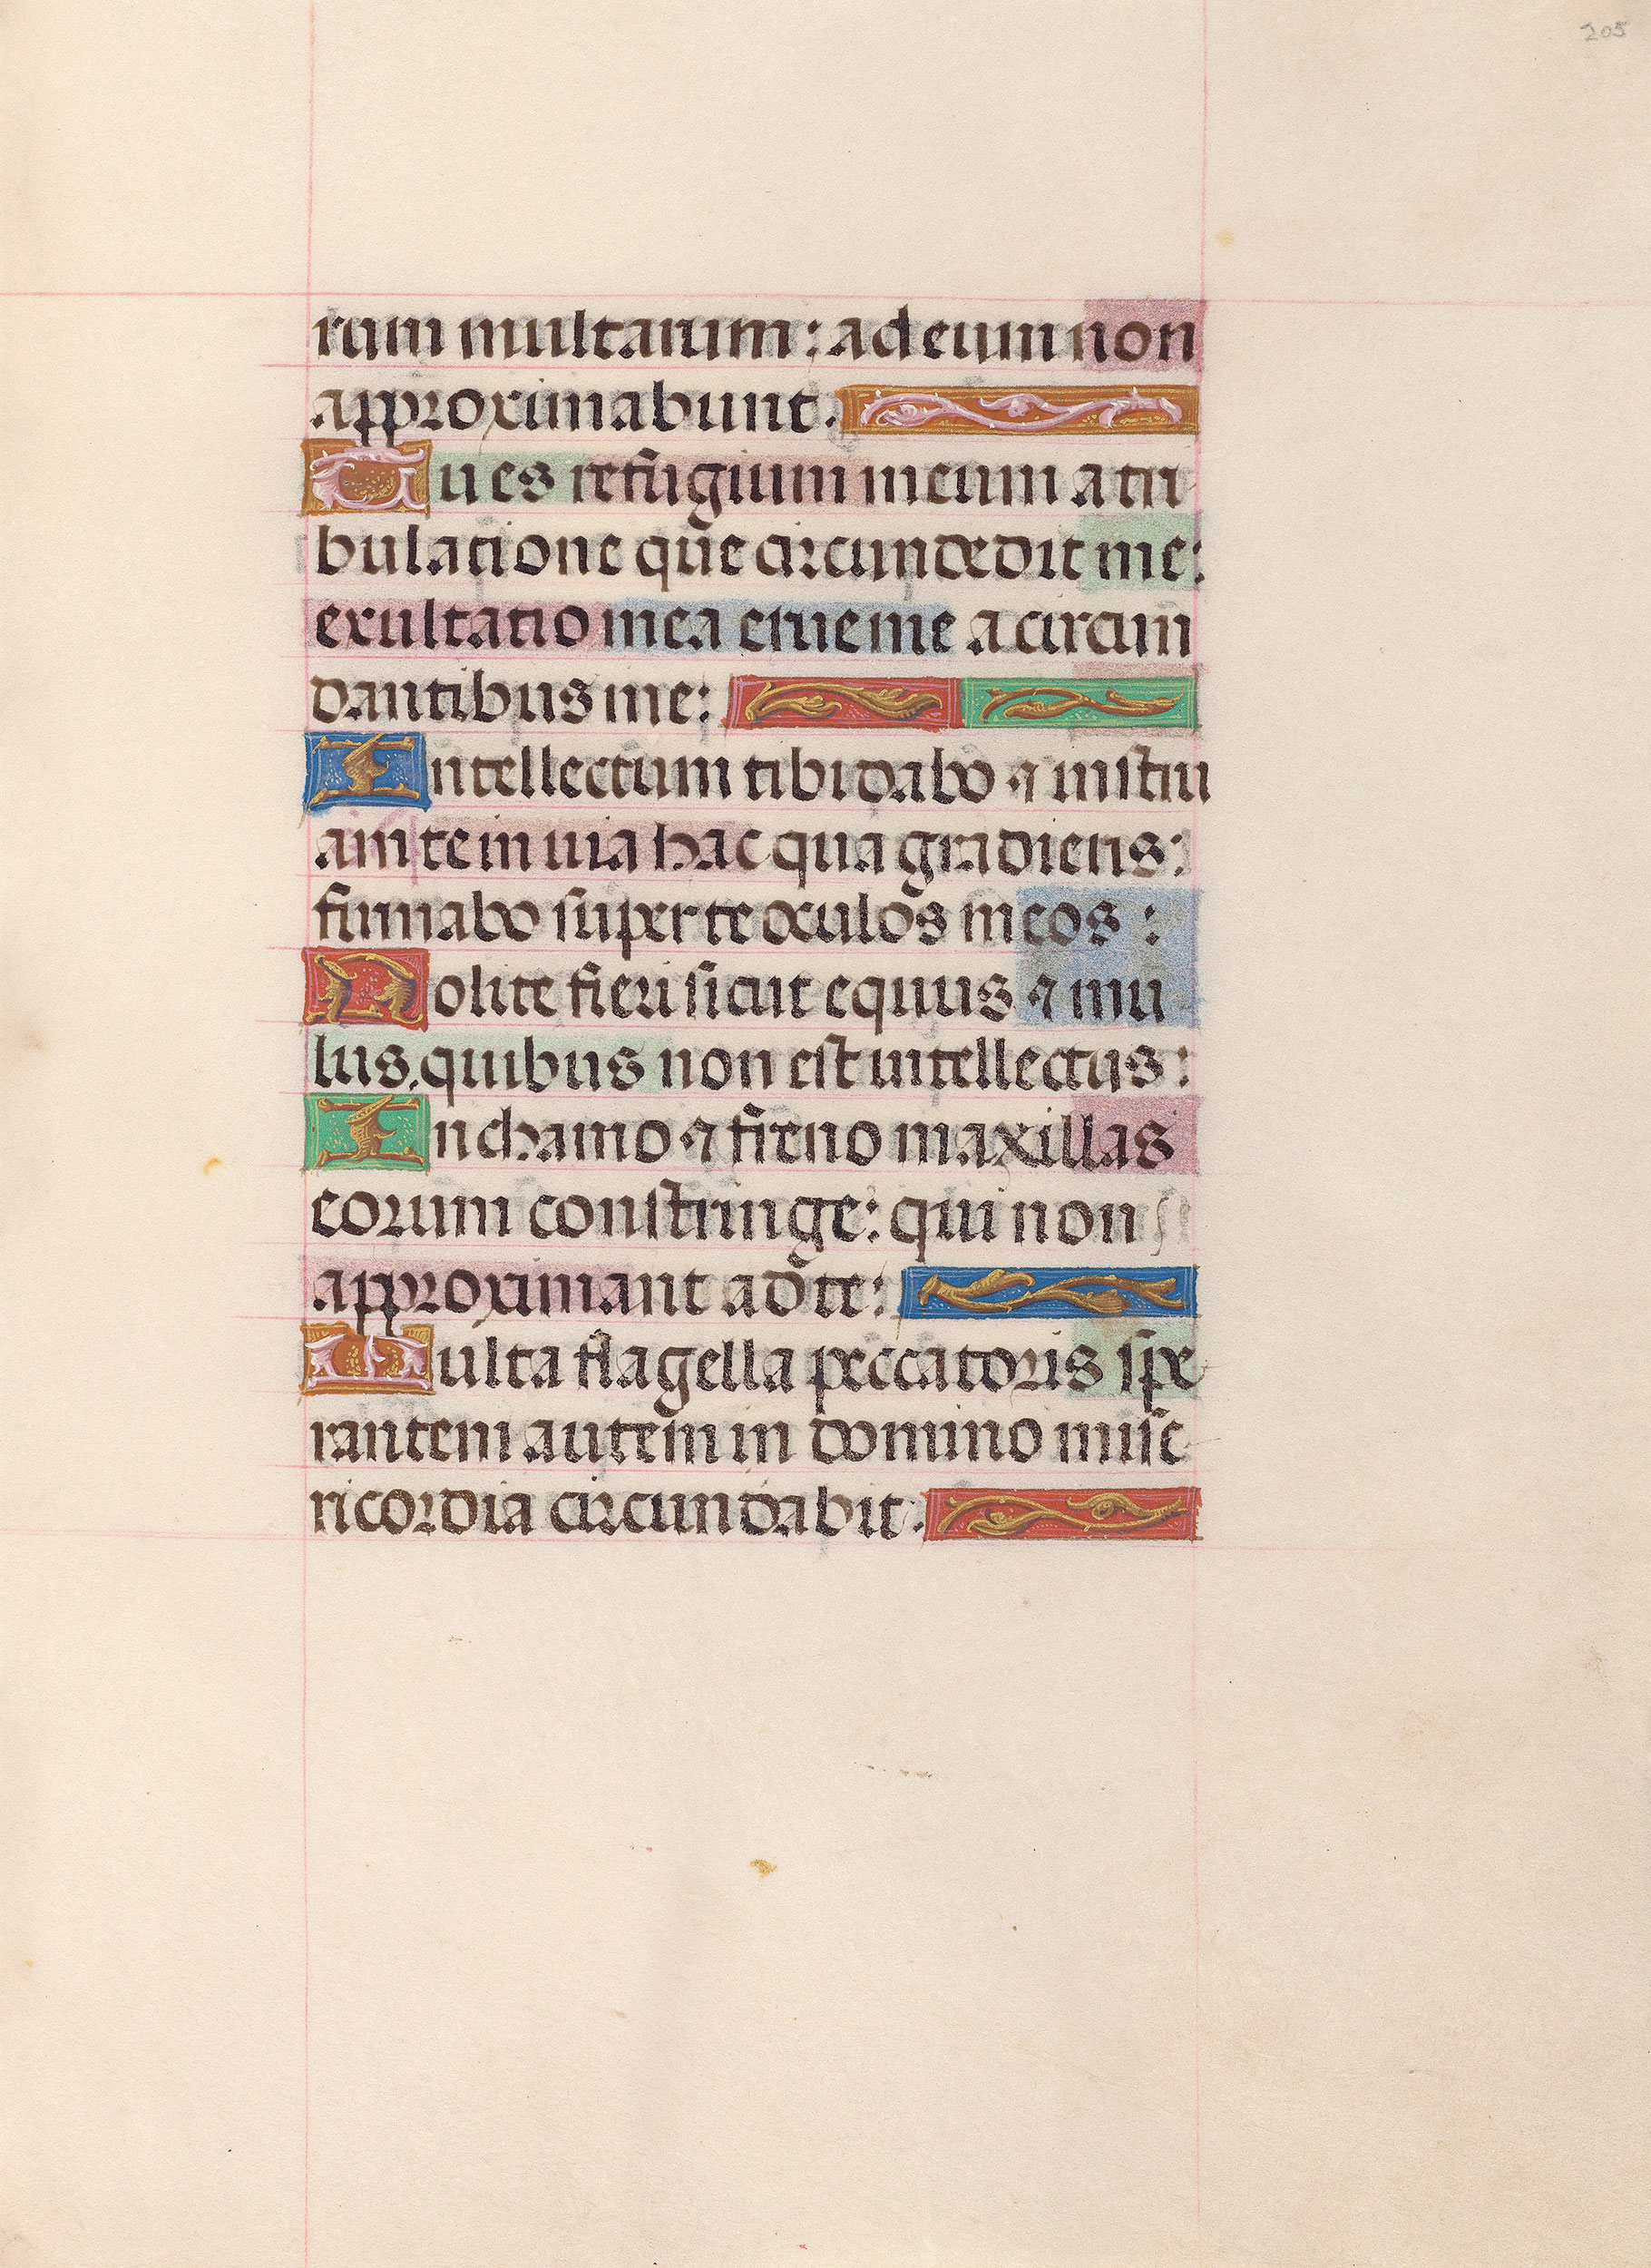 205
rum multarum: ad eum non
approximabunt.
Tu es refugium meum a tri
bulatione que circundedit me:
exultatio mea erue me a circun
dantibus me:
Intellectum tibi dabo ⁊ instru
am te in uia hac qua gradieris:
firmabo super te oculos meos:
Nolite fieri sicut equus ⁊ mu
lus. quibus non est intellectus:
In chamo ⁊ freno maxillas
eorum constringe: qui non
approximant ad te:
Multa flagella peccatoris spe
rantem autem in domino mise
ricordia circundabit.